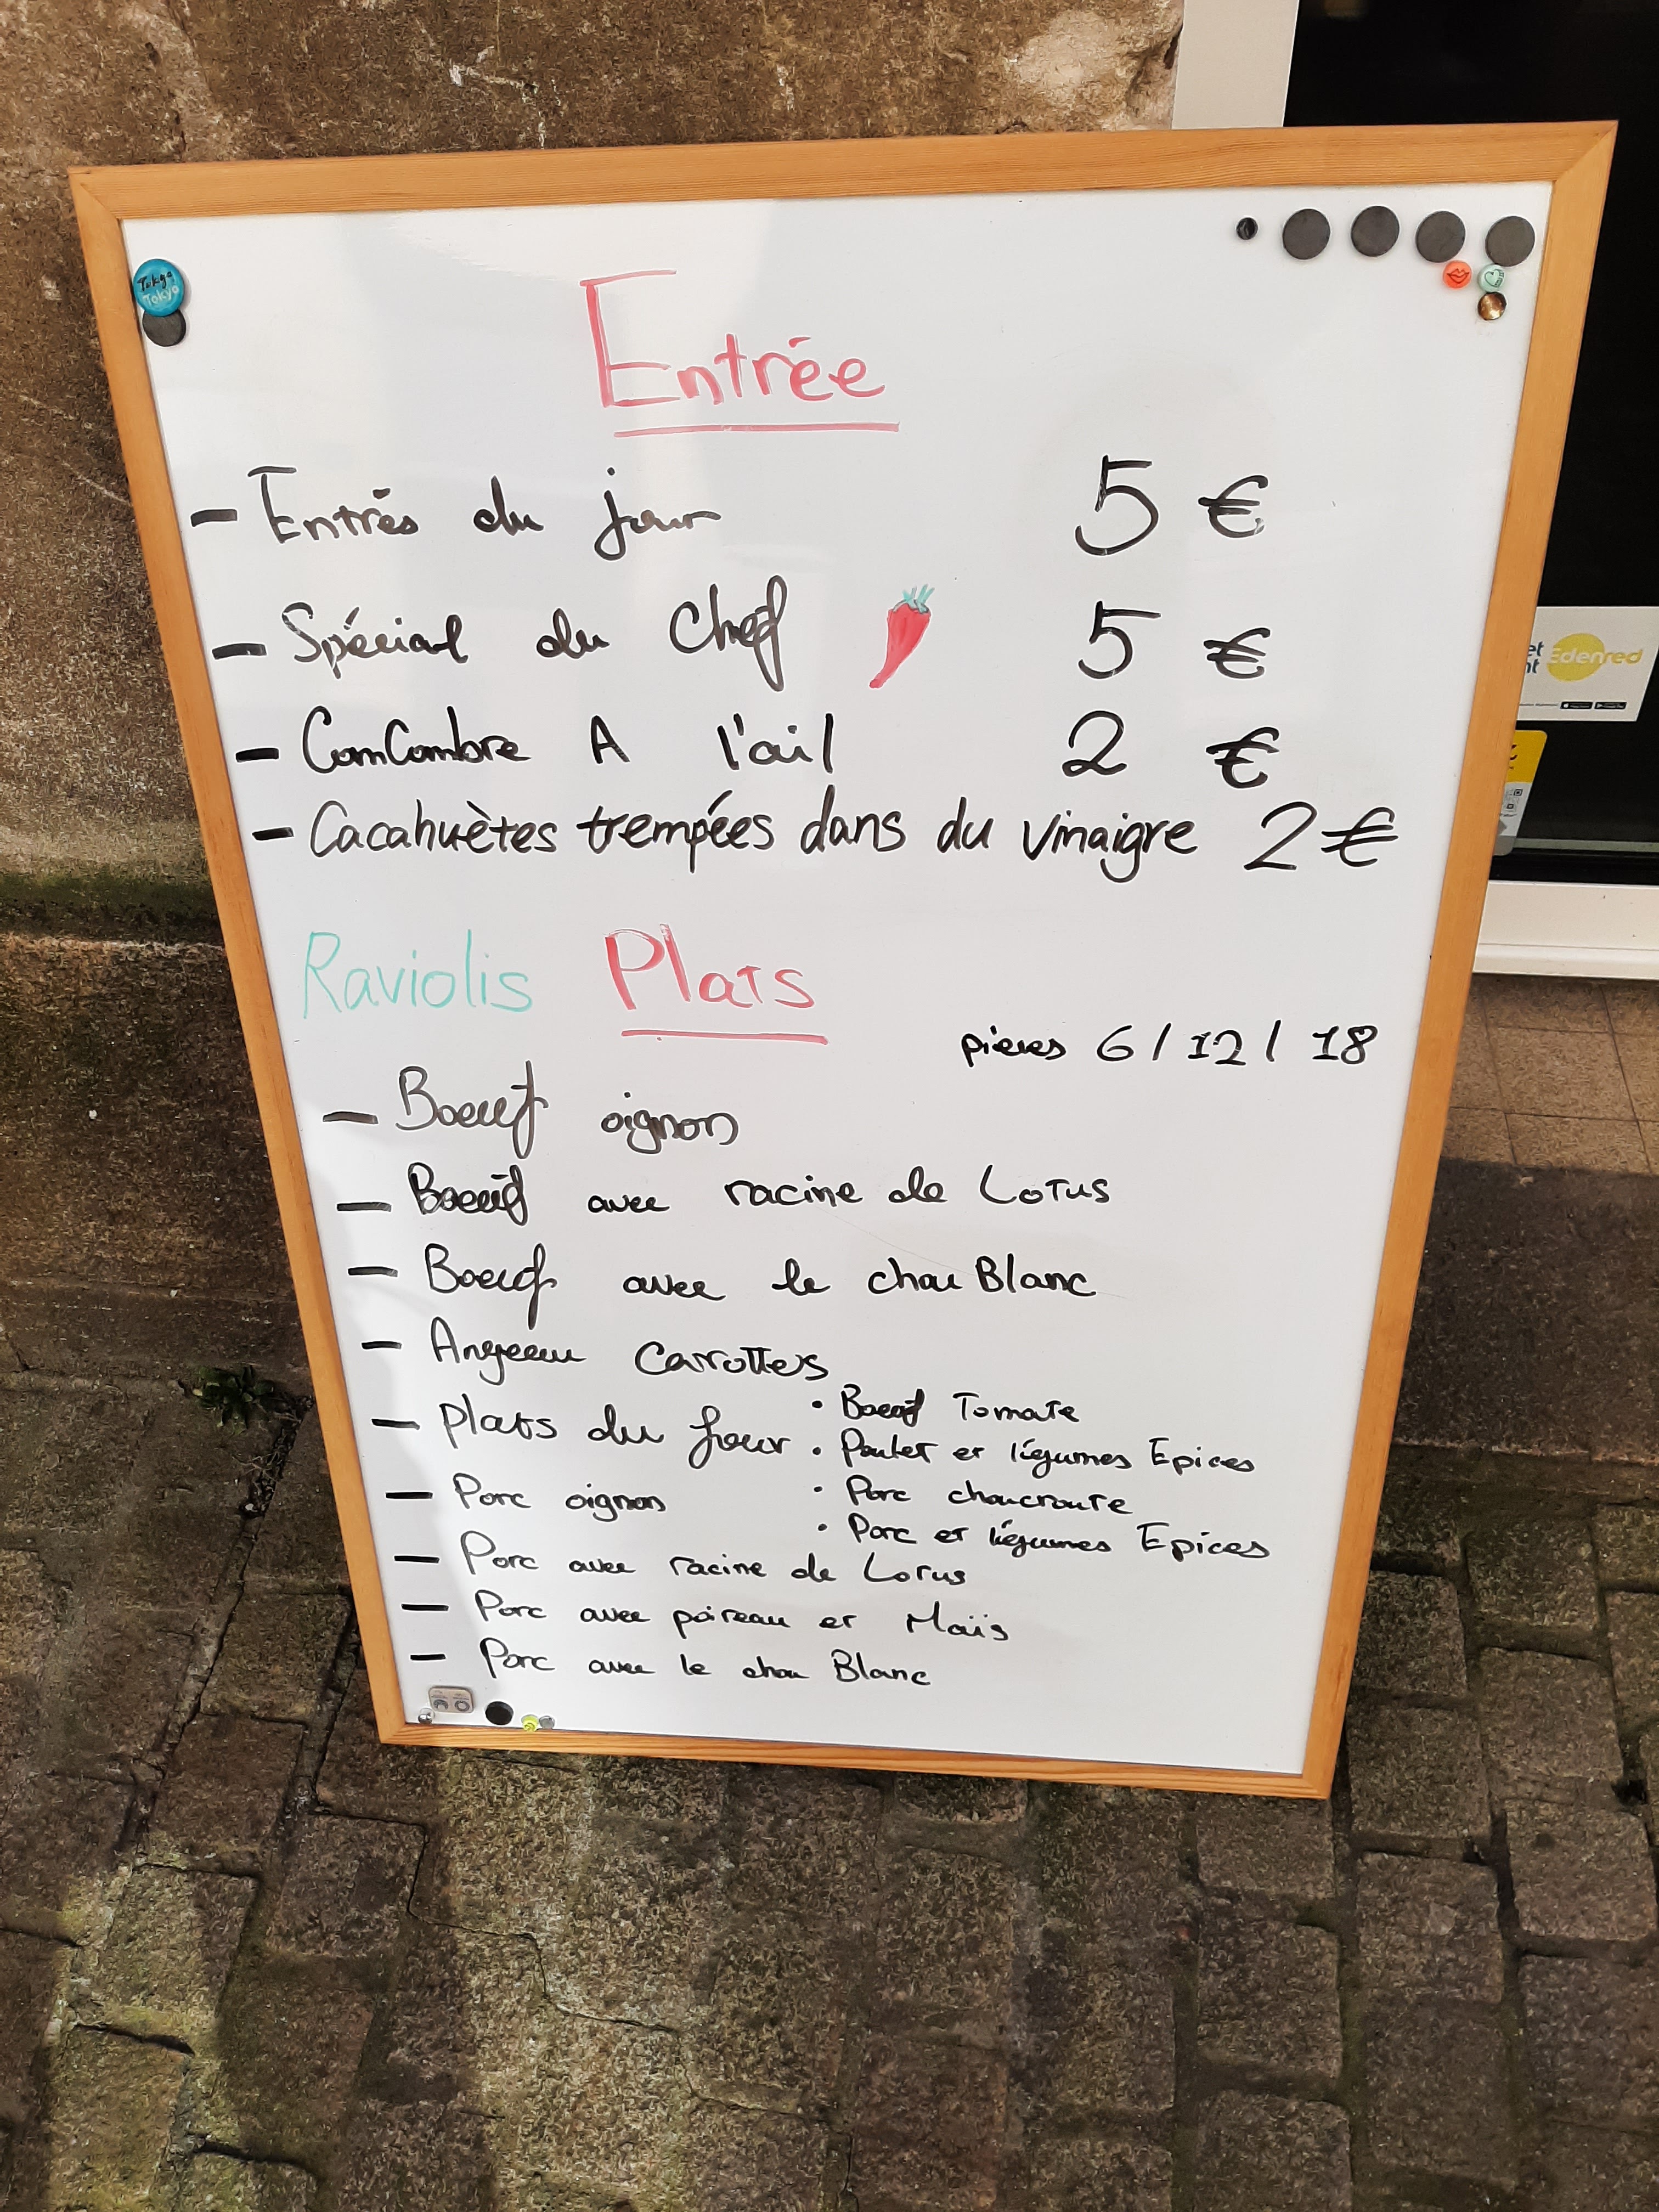 Tokyo
Tokyo
Entrée
- Entrés du jour 5 €
- Spécial du Chef 5 €
- ComCombre A l'ail 2 €
- Cacahuètes trempées dans du vinaigre 2 €
Raviolis Plats
pièces 6 / 12 / 18
- Boeuf oignon
- Boeuf avec racine de Lotus
- Boeuf avec le chou Blanc
- Angeau Carottes
- plats du jour
• Boeuf Tomate
• Poulet et légumes Epices
• Porc choucroute
• Porc et légumes Epices
- Porc oignon
- Porc avec racine de Lotus
- Porc avec poireau et Maïs
- Porc avec le chou Blanc
Edenred